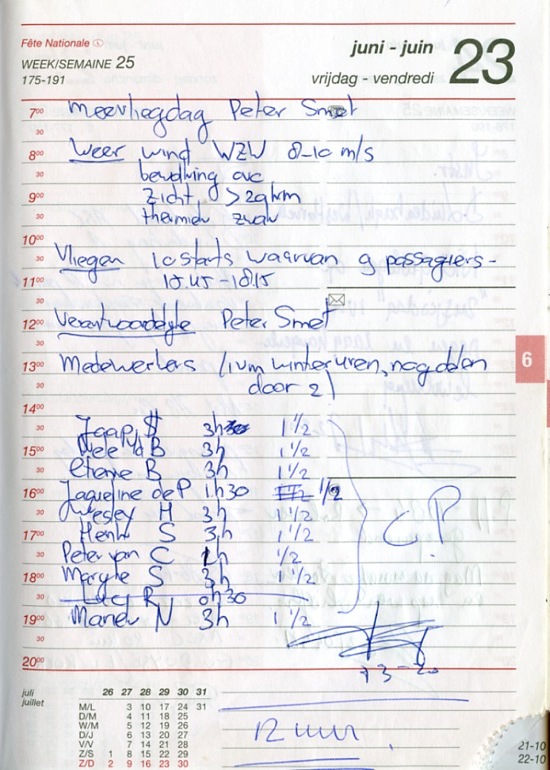 Fête Nationale Ⓛ
WEEK/SEMAINE 25
175-191
juni - juin
vrijdag - vendredi
23
7⁰⁰ Meevliegdag Peter Smet
30
8⁰⁰ Weer wind WZW 8-10 m/s
30 bewolking ovc
9⁰⁰ Zicht >20km
30 thermiek zwak
10⁰⁰
30 Vliegen 10 starts waarvan 9 passagiers-
11⁰⁰ 15.45-18.15
30
12⁰⁰ Verantwoordelijke Peter Smet
30
13⁰⁰ Medewerkers (ivm winteruren, nog delen
30 door 2)
14⁰⁰
30 Jaap S 3h 1 1/2
15⁰⁰ B 3h 1 1/2
30 B 3h 1 1/2
16⁰⁰ Jaqueline de P 1h30 1/2
30 Wesley H 3h 1 1/2
17⁰⁰ Henk S 3h 1 1/2
30 Peter van C 1h 1/2
18⁰⁰ S 3h 1 1/2
30 Lucy R 0h30
19⁰⁰ N 3h 1 1/2
30
20⁰⁰
C.P
73-20
12 uur
6
juli
juillet
26 27 28 29 30 31
M/L 3 10 17 24 31
D/M 4 11 18 25
W/M 5 12 19 26
D/J 6 13 20 27
V/V 7 14 21 28
Z/S 1 8 15 22 29
Z/D 2 9 16 23 30
21-10
22-10